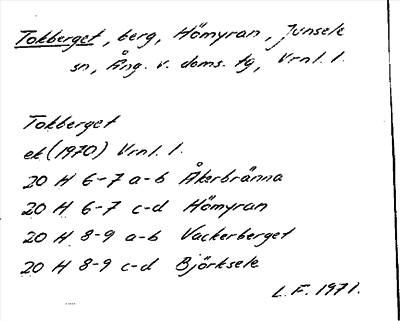 Tokberget, berg, Hömyran, Junsele
sn, Ång. v. doms. tg, Vrnl. l.
Tokberget
ek (1970) Vrnl. l.
20 H 6-7 a-b Åkerbränna
20 H 6-7 c-d Hömyran
20 H 8-9 a-b Vackerberget
20 H 8-9 c-d Björksele
L.F. 1971.